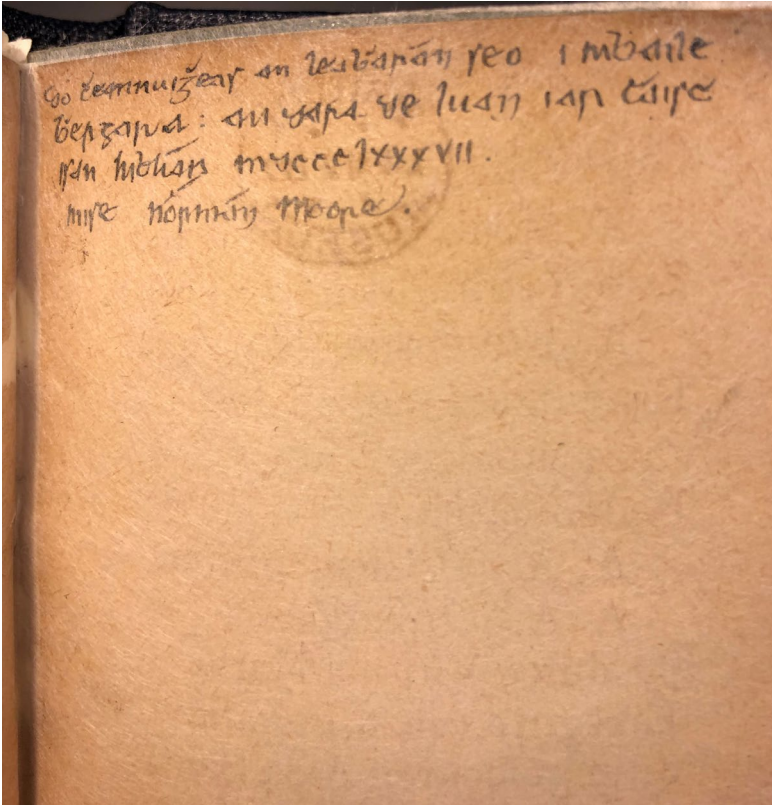 do ċeannuiġeas an leaḃarán seo i mbaile
bergara: an dara de luan iar Cáisc
san mbliaḋain mdccclxxxvii.
mise Nórmán Moore.